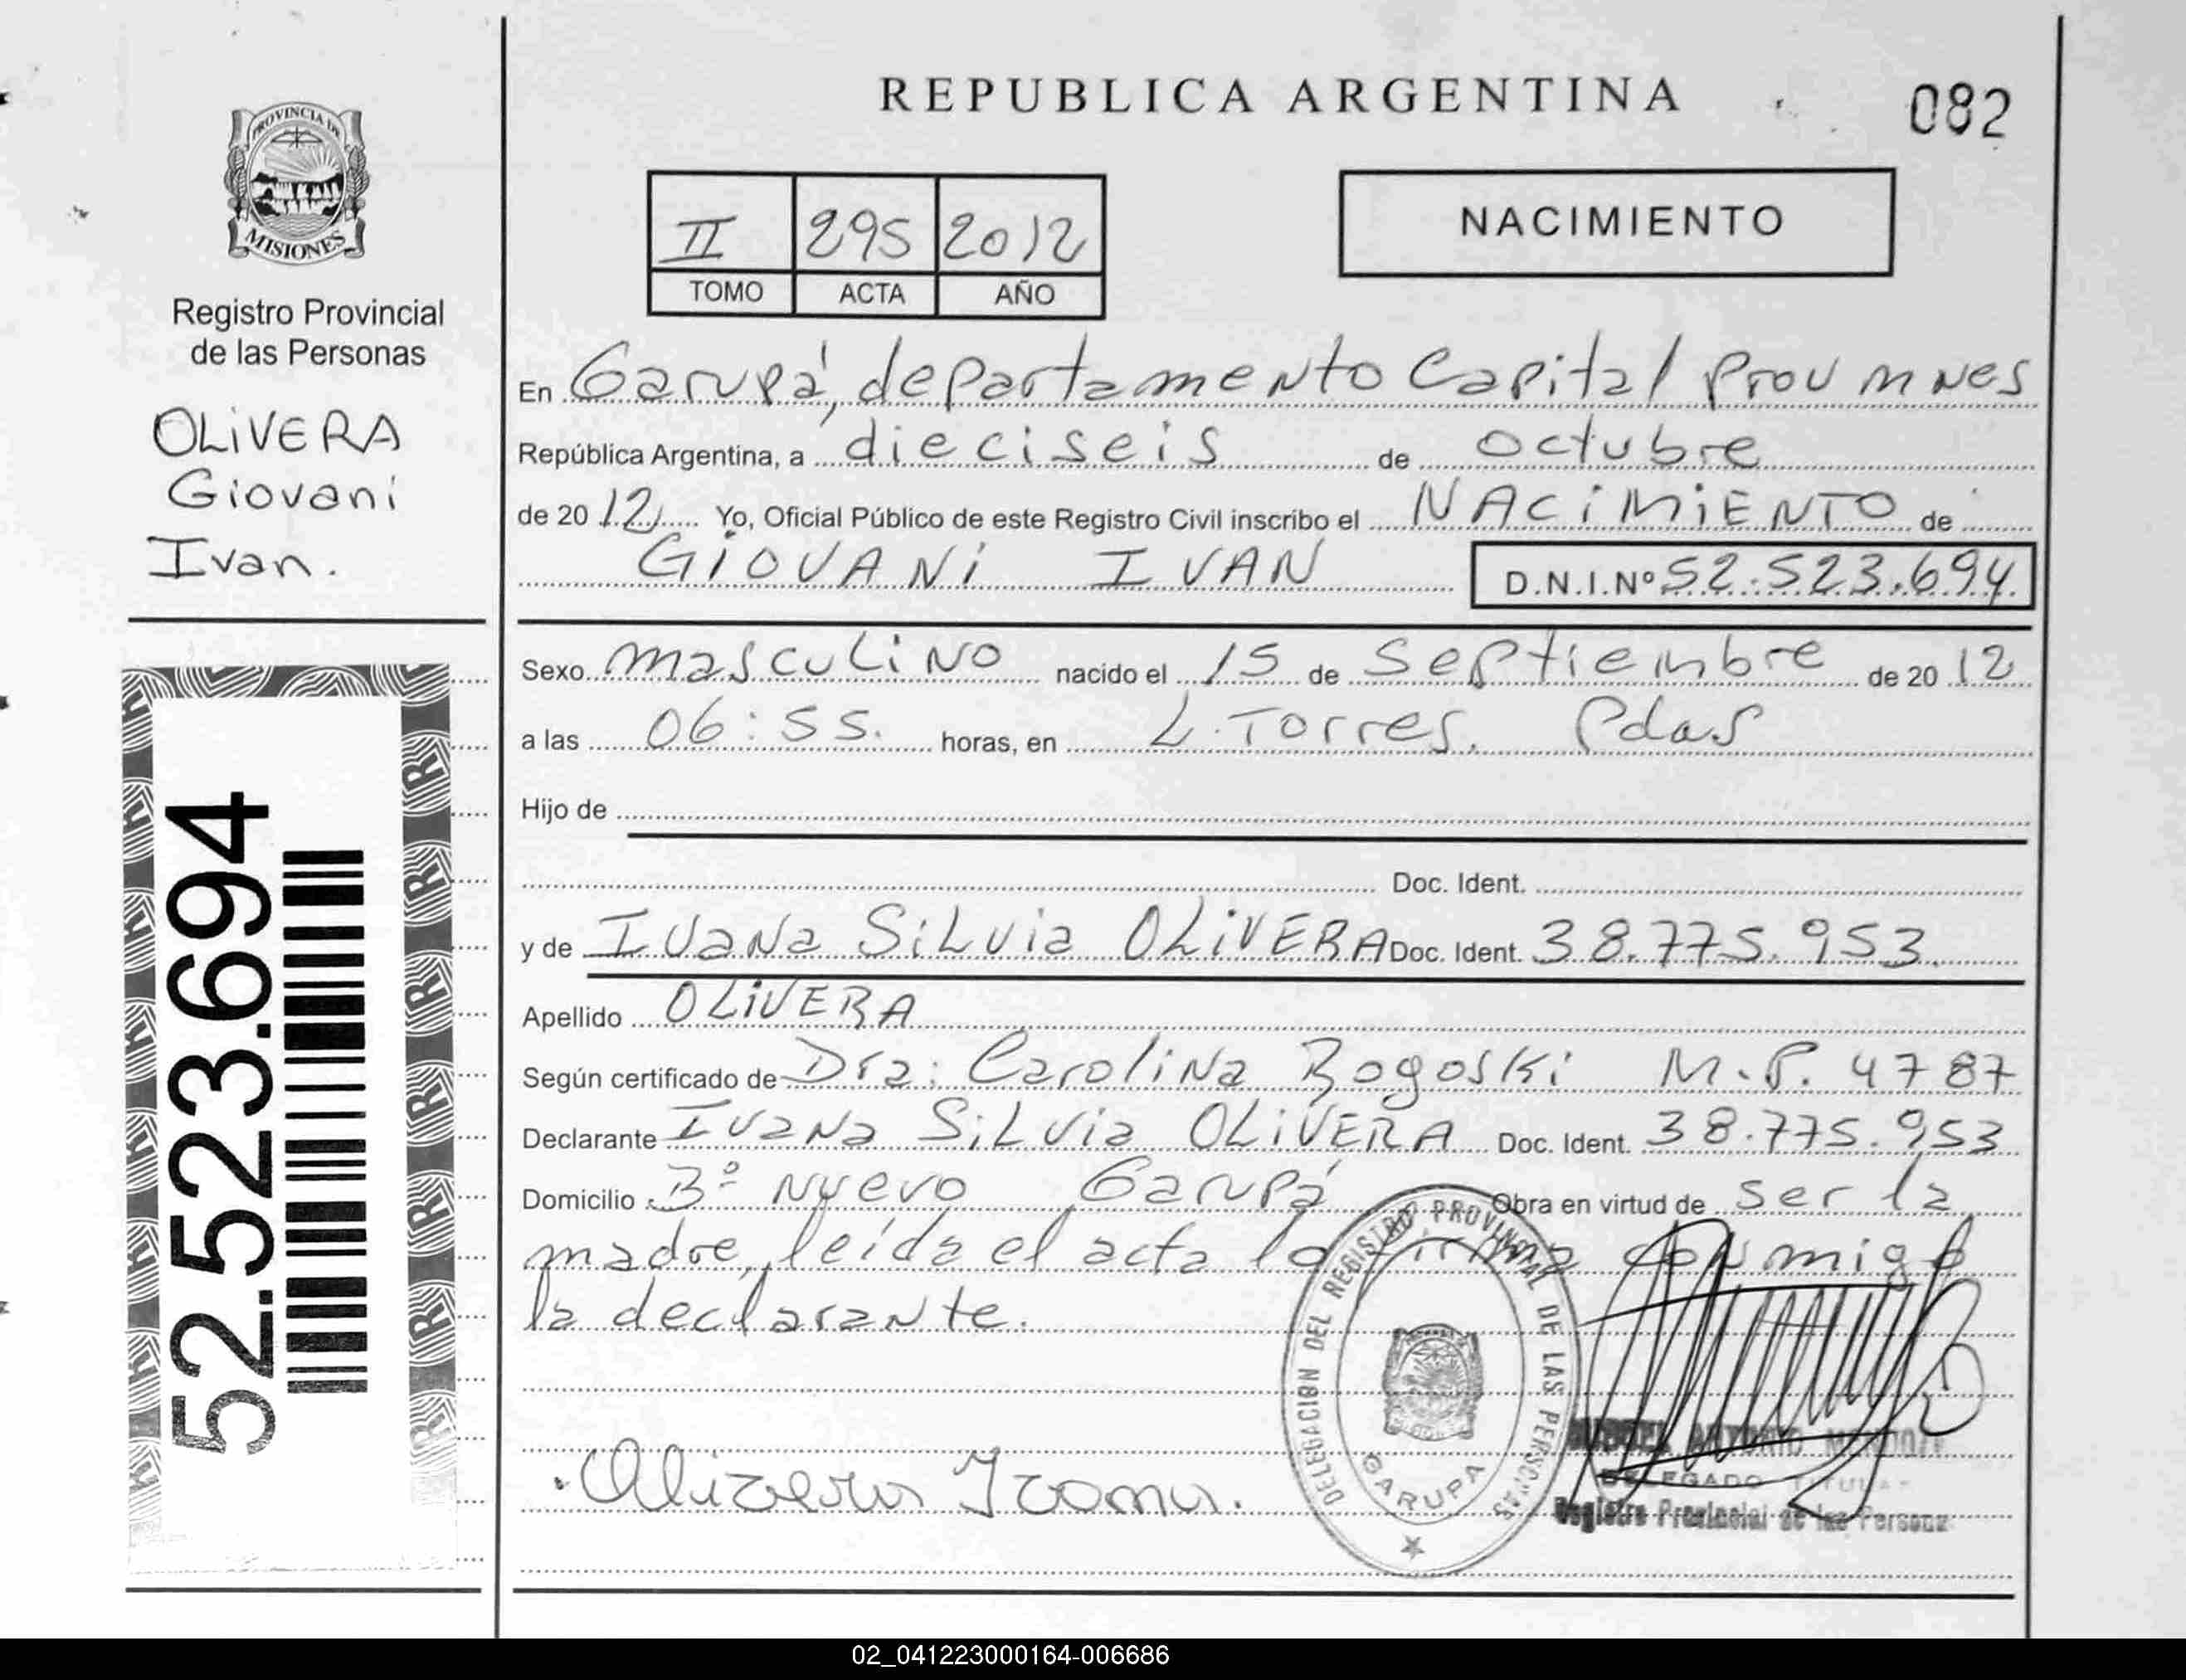 REPUBLICA ARGENTINA
082
PROVINCIA DE
MISIONES
Registro Provincial
de las Personas
OLiVERA
Giovani
Ivan.
52.523.694
II 295 2012
TOMO ACTA AÑO
NACIMIENTO
En Garupá, departamento Capital Prov Mnes
República Argentina, a dieciseis de octubre
de 20 12 Yo, Oficial Público de este Registro Civil inscribo el NACiMiENTO de
GiOVANi IVAN D.N.I.Nº 52.523.694
Sexo masculino nacido el 15 de Septiembre de 20 12
a las 06:55. horas, en L. Torres. Pdas
Hijo de
Doc. Ident.
y de Ivana Silvia OLiVERA Doc. Ident. 38.775.953
Apellido OLiVERA
Según certificado de Dra: Carolina Rogoski M.P. 4787
Declarante Ivana Silvia OLiVERA Doc. Ident. 38.775.953
Domicilio Bº Nuevo Garupá Obra en virtud de ser la
madre, leída el acta la firma conmigo
la declarante.
DELEGACION DEL REGISTRO PROVINCIAL DE LAS PERSONAS
GARUPA
Olivera Ivana.
ANTONIO
DELEGADO TITULAR
Registro Provincial de las Persona
02_041223000164-006686